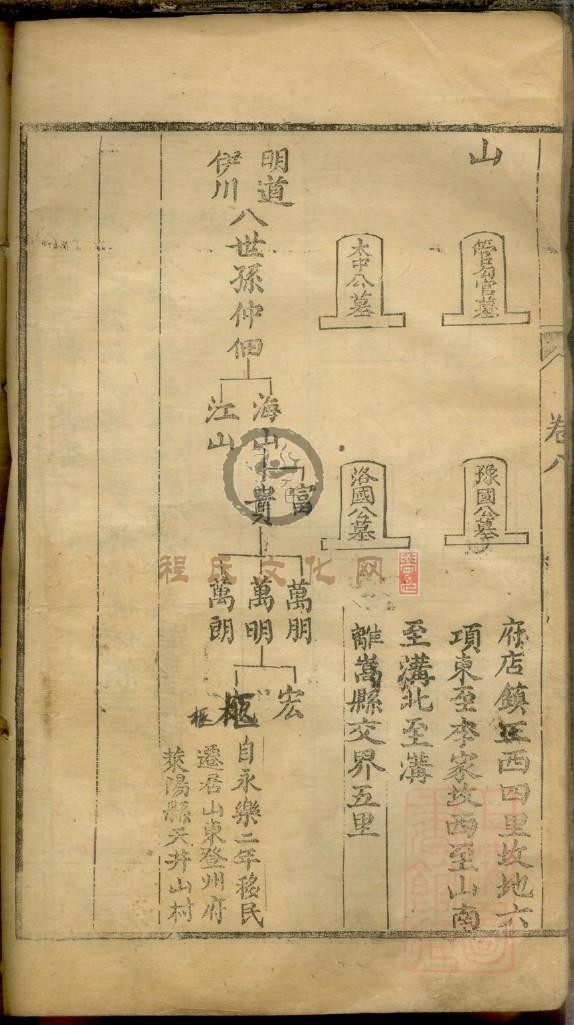 卷八
山
管勾官墓
豫國公墓
太中公墓
洛國公墓
府店鎮正西四里故地六
項東至李家坟西至山南
至溝北至溝
離嵩縣交界五里
明道
伊川
八世孫仲佃
海山
江山
富
貴
萬朋
萬明
萬朗
宏
樞
枢
自永樂二年移民
遷居山東登州府
萊陽縣天井山村
程氏文化网